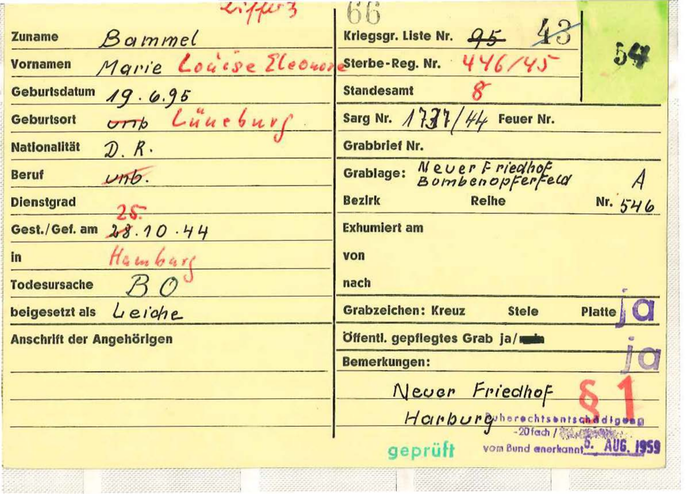 66
Zuname Bammel
Kriegsgr. Liste Nr. 95 43
54
Vornamen Marie Louise Eleonore
Sterbe-Reg. Nr. 446/45
Geburtsdatum 19.6.95
Standesamt 8
Geburtsort unb Lüneburg
Sarg Nr. 1737/44 Feuer Nr.
Nationalität D.R.
Grabbrief Nr.
Beruf unb.
Grablage: Neuer Friedhof
Bombenopferfeld A
Dienstgrad
Bezirk Reihe Nr. 546
25.
Gest./Gef. am 28.10.44
Exhumiert am
in Hamburg
von
Todesursache BO
nach
beigesetzt als Leiche
Grabzeichen: Kreuz Stele Platte ja
Anschrift der Angehörigen
Öffentl. gepflegtes Grab ja/nein
ja
Bemerkungen:
Neuer Friedhof
Harburg
§ 1
Ruherechtsentschädigung
-20fach /
vom Bund anerkannt 6. AUG. 1959
geprüft